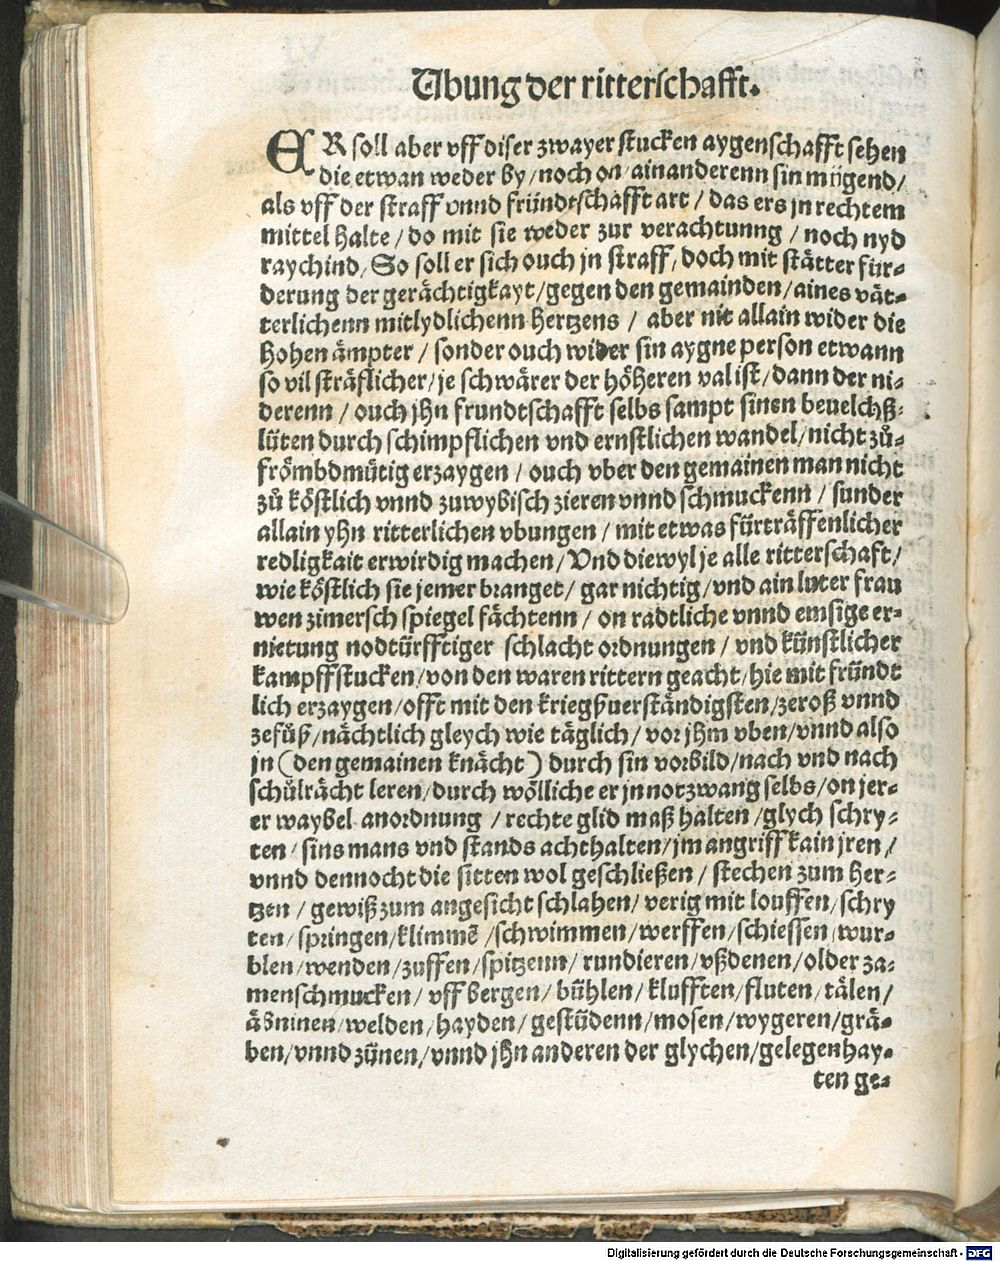 Übung der ritterschafft.
ER soll aber vff diser zwayer stucken aygenschafft sehen
die etwan weder by/noch on ainanderenn sin mügend/
als vff der straff vnnd fründtschafft art / das ers jn rechtem
mittel halte / do mit sie weder zur verachtunng / noch nyd
raychind/ So soll er sich ouch jn straff/ doch mit stätter für⸗
derung der gerächtigkayt/gegen den gemainden/aines vät⸗
terlichenn mitlydlichenn hertzens / aber nit allain wider die
hohen ämpter / sonder ouch wider sin aygne person etwann
so vil sträflicher/je schwärer der höheren val ist/dann der ni⸗
derenn / ouch jhn frundtschafft selbs sampt sinen beuelchß⸗
lüten durch schimpflichen vnd ernstlichen wandel/nicht zů⸗
frömbdmütig erzaygen / ouch vber den gemainen man nicht
zů köstlich vnnd zuwybisch zieren vnnd schmuckenn / sunder
allain yhn ritterlichen vbungen / mit etwas fürträffenlicher
redligkait erwirdig machen/Vnd diewyl je alle ritterschaft/
wie köstlich sie jemer branget/ gar nichtig/vnd ain luter frau
wen zimersch spiegel fächtenn / on radtliche vnnd emsige er⸗
nietung nodtürfftiger schlacht ordnungen / vnd künstlicher
kampffstucken/von den waren rittern geacht/hie mit fründt
lich erzaygen/offt mit den kriegßuerständigsten/zeroß vnnd
zefůß/nächtlich gleych wie täglich/ vor jhm vben/vnnd also
jn (den gemainen knächt) durch sin vorbild/nach vnd nach
schůlrächt leren/durch wölliche er jn notzwang selbs/on jer⸗
er waybel anordnung / rechte glid maß halten /glych schry⸗
ten / sins mans vnd stands acht halten/jm angriff kain jren /
vnnd dennocht die sitten wol geschließen / stechen zum her⸗
tzen / gewiß zum angesicht schlahen/ verig mit louffen/schry
ten/springen/klimmē /schwimmen/werffen/schiessen/wur⸗
blen/wenden/zuffen/spitzenn/ rundieren/vßdenen/older za⸗
menschmucken/ vff bergen/ bühlen/klufften/fluten/tälen/
äbninen/welden/hayden/ gestüdenn/mosen/wygeren/grä⸗
ben/vnnd zünen/vnnd jhn anderen der glychen/gelegenhay⸗
ten ge⸗
Digitalisierung gefördert durch die Deutsche Forschungsgemeinschaft - DFG